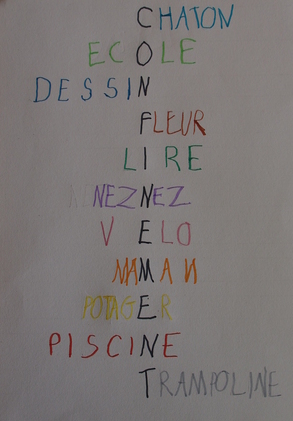 CHATON
ECOLE
DESSIN
FLEUR
LIRE
NEZNEZ
VELO
MAMAN
POTAGER
PISCINE
TRAMPOLINE